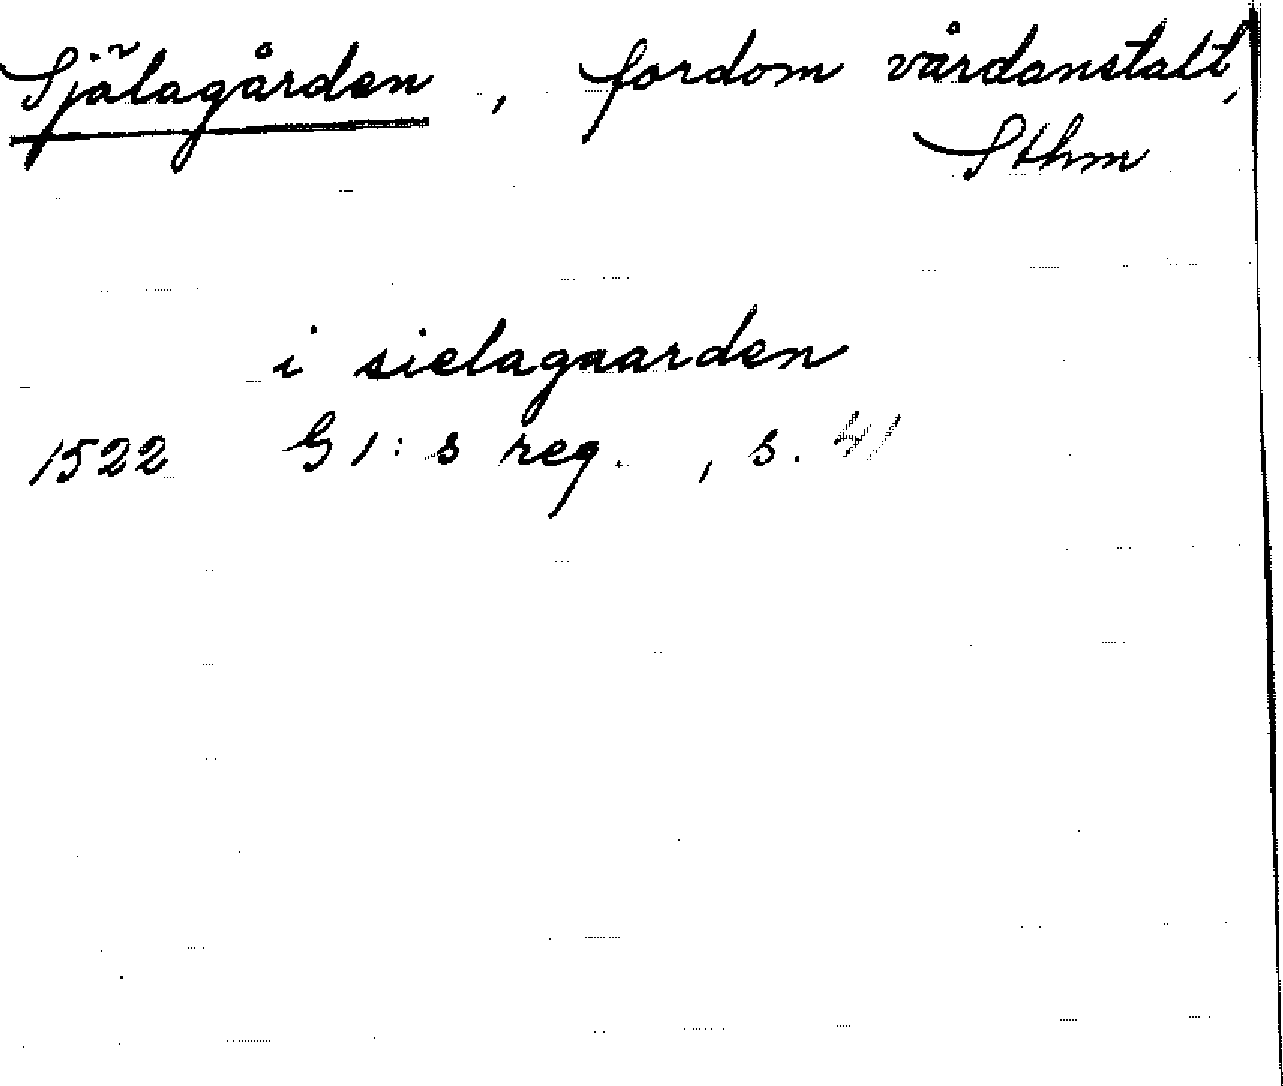 Själagården, fordom vårdanstalt,
Sthm
i sielagaarden
1522 G I:s reg. , s. 41